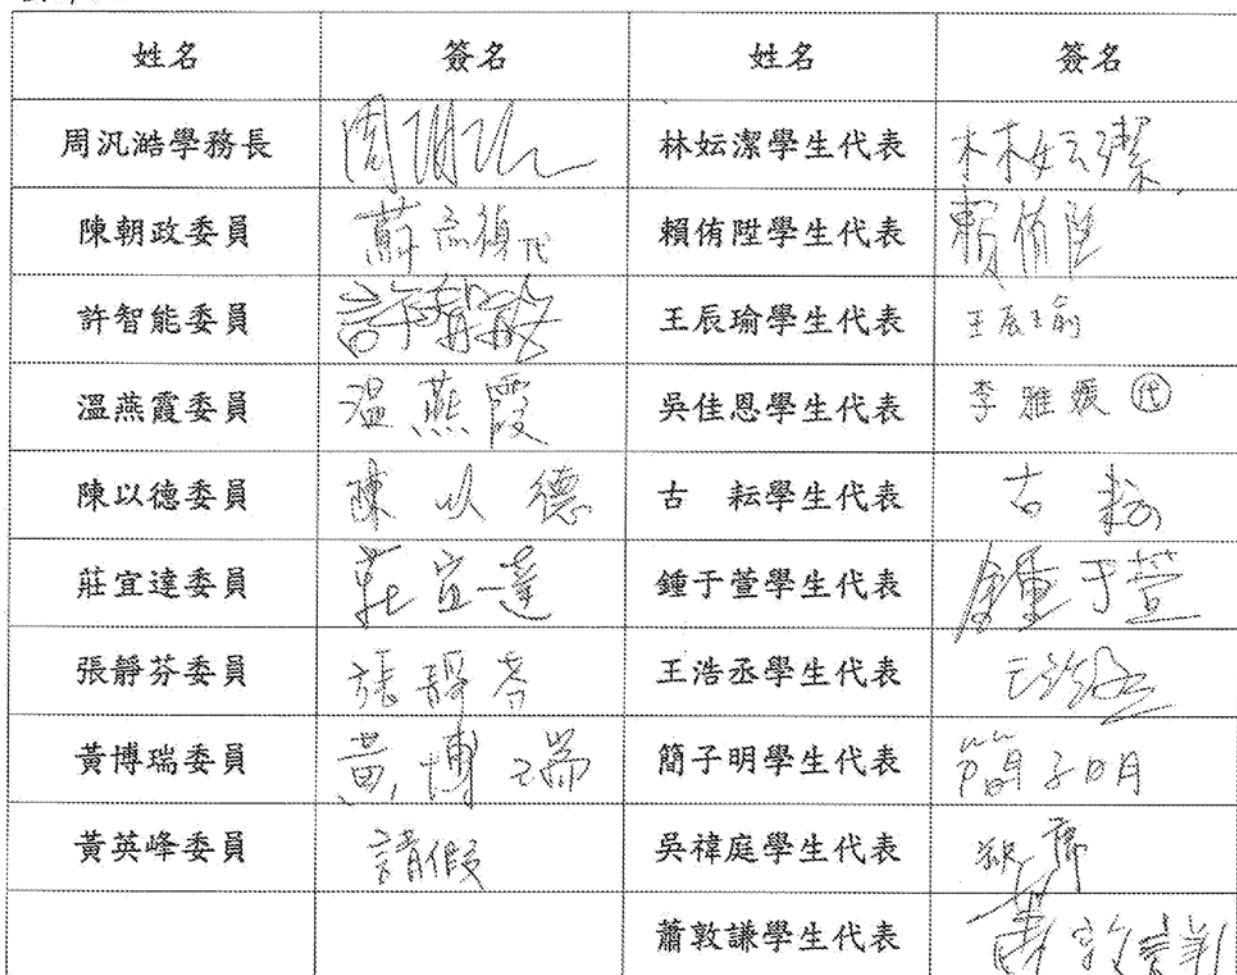 姓名 簽名 姓名 簽名
周汎澔學務長 林妘潔學生代表 林妘潔
陳朝政委員 代 賴侑陞學生代表 賴侑陞
許智能委員 許智能 王辰瑜學生代表 王辰瑜
溫燕霞委員 溫燕霞 吳佳恩學生代表 李雅 代
陳以德委員 陳以德 古 耘學生代表 古耘
莊宜達委員 莊宜達 鍾于萱學生代表 鍾于萱
張靜芬委員 張靜芬 王浩丞學生代表 王浩丞
黃博瑞委員 黃博瑞 簡子明學生代表 簡子明
黃英峰委員 請假 吳禕庭學生代表 缺席
蕭敦謙學生代表 蕭敦謙